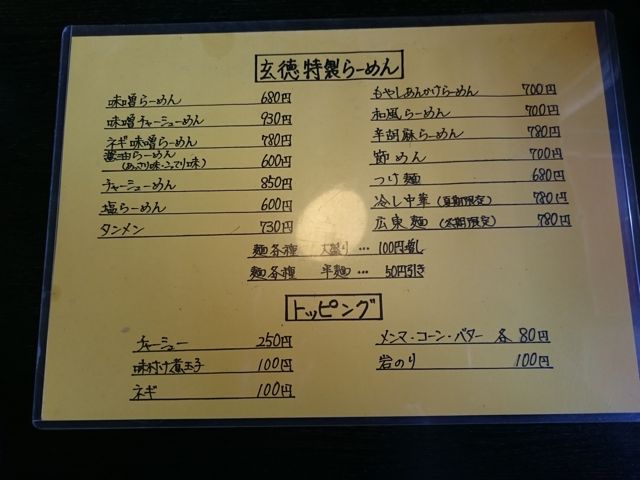 玄徳特製らーめん
味噌らーめん 680円
味噌チャーシューめん 930円
ネギ味噌らーめん 780円
醤油らーめん (あっさり味・こってり味) 600円
チャーシューめん 850円
塩らーめん 600円
タンメン 730円
もやしあんかけらーめん 700円
和風らーめん 700円
辛胡麻らーめん 780円
節めん 700円
つけ麺 680円
冷し中華 (夏期限定) 780円
広東麺 (冬期限定) 780円
麺各種 大盛り … 100円増し
麺各種 半麺 … 50円引き
トッピング
チャーシュー 250円
味付け煮玉子 100円
ネギ 100円
メンマ・コーン・バター 各80円
岩のり 100円